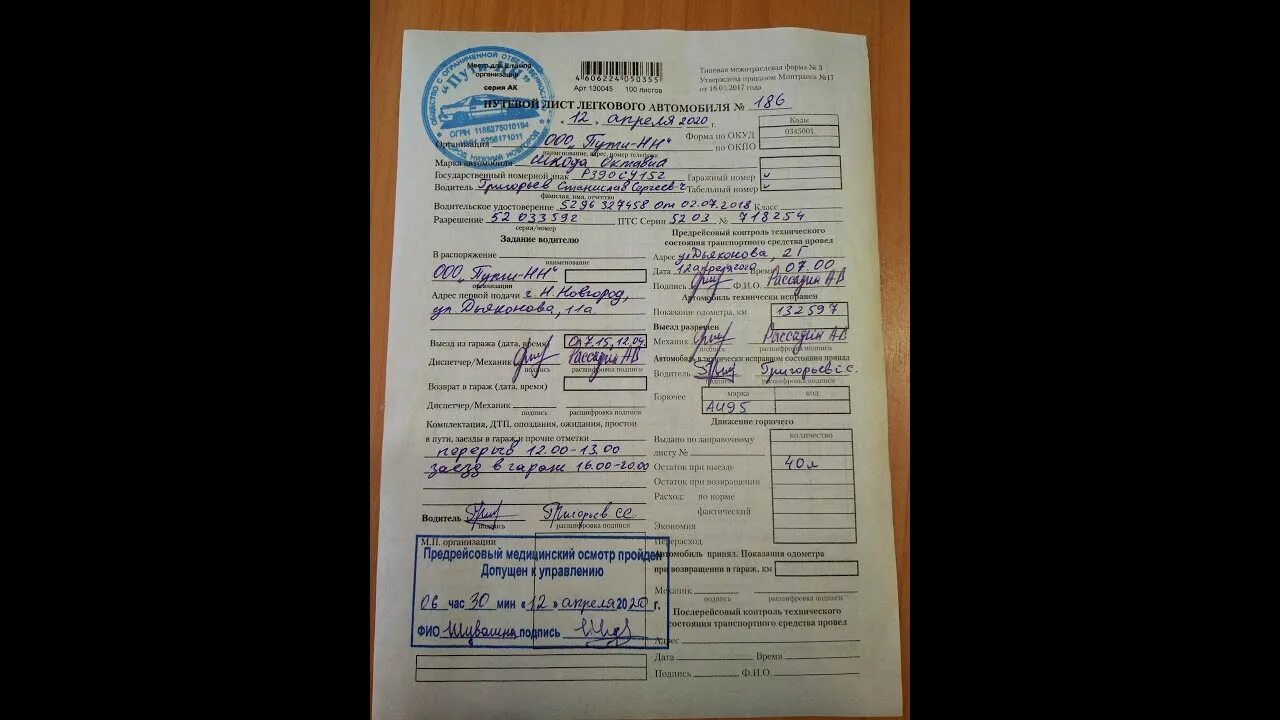 ОБЩЕСТВО С ОГРАНИЧЕННОЙ ОТВЕТСТВЕННОСТЬЮ
"Пути-НН"
ОГРН 1185275010194
ИНН 5256171011
ГОРОД НИЖНИЙ НОВГОРОД
Место для штампа
организации
серия АК
4 606224 050355
Арт 130045 100 листов
Типовая межотраслевая форма № 3
Утверждена приказом Минтранса №17
от 18.01.2017 года
ПУТЕВОЙ ЛИСТ ЛЕГКОВОГО АВТОМОБИЛЯ № 186
«12» апреля 2020 г.
Коды
Форма по ОКУД 0345001
Организация ООО „Пути-НН" по ОКПО
наименование, адрес, номер телефона
Марка автомобиля Шкода Октавиа
Государственный номерной знак Р390СУ152 Гаражный номер
Водитель Григорьев Станислав Сергеев-ч Табельный номер
фамилия, имя, отчество
Водительское удостоверение 5296 327458 от 02.07.2018 Класс
Разрешение 52 033592 ПТС Серии 52 03 № 718254
серия/номер
Задание водителю
В распоряжение
наименование
ООО „Пути-НН"
организации
Адрес первой подачи г. Н.Новгород,
ул Дьяконова, 11а
Выезд из гаража (дата, время) 07.15, 12.04
Диспетчер/Механик Рассадин АВ
подпись расшифровка подписи
Возврат в гараж (дата, время)
Диспетчер/Механик
подпись расшифровка подписи
Комплектация, ДТП, опоздания, ожидания, простои
в пути, заезды в гараж и прочие отметки
перерыв 12.00-13.00
заезд в гараж 16.00-20.00
Водитель Григорьев. СС.
подпись расшифровка подписи
М.П. организации
Предрейсовый медицинский осмотр пройден
Допущен к управлению
06 час 30 мин «12» апреля 2020 г.
ФИО подпись
Предрейсовый контроль технического
состояния транспортного средства провел
Адрес ул Дьяконова, 2Г
Дата 12апреля2020 Время 07 00
Подпись Ф.И.О. Рассадин АВ
Автомобиль технически исправен
Показание одометра, км 132597
Выезд разрешен
Механик Рассадин АВ
подпись расшифровка подписи
Автомобиль в технически исправном состоянии принял
Водитель Григорьев С.С.
подпись расшифровка подписи
Горючее марка код
АИ95
Движение горючего
количество
Выдано по заправочному
листу №
Остаток при выезде 40л
Остаток при возвращении
Расход: по норме
фактический
Экономия
Перерасход
Автомобиль принял. Показания одометра
при возвращении в гараж, км
Механик
подпись расшифровка подписи
Послерейсовый контроль технического
состояния транспортного средства провел
Адрес
Дата Время
Подпись Ф.И.О.